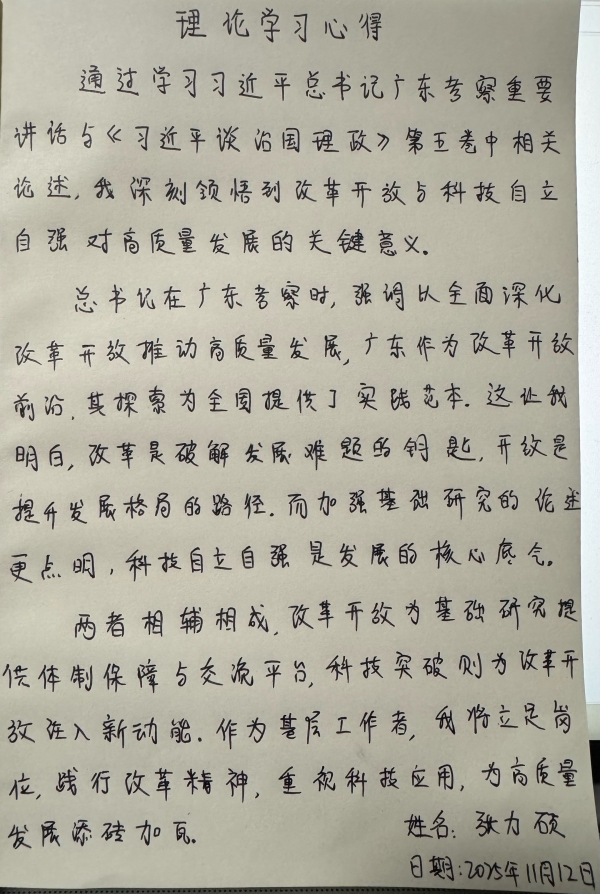 理论学习心得
通过学习习近平总书记广东考察重要
讲话与《习近平谈治国理政》第五卷中相关
论述,我深刻领悟到改革开放与科技自立
自强对高质量发展的关键意义。
总书记在广东考察时,强调以全面深化
改革开放推动高质量发展,广东作为改革开放
前沿,其探索为全国提供了实践范本.这让我
明白,改革是破解发展难题的钥匙,开放是
提升发展格局的路径.而加强基础研究的论述
更点明,科技自立自强是发展的核心底气。
两者相辅相成,改革开放为基础研究提
供体制保障与交流平台,科技突破则为改革开
放注入新动能.作为基层工作者,我将立足岗
位,践行改革精神,重视科技应用,为高质量
发展添砖加瓦.
姓名:张力硕
日期:2025年11月12日